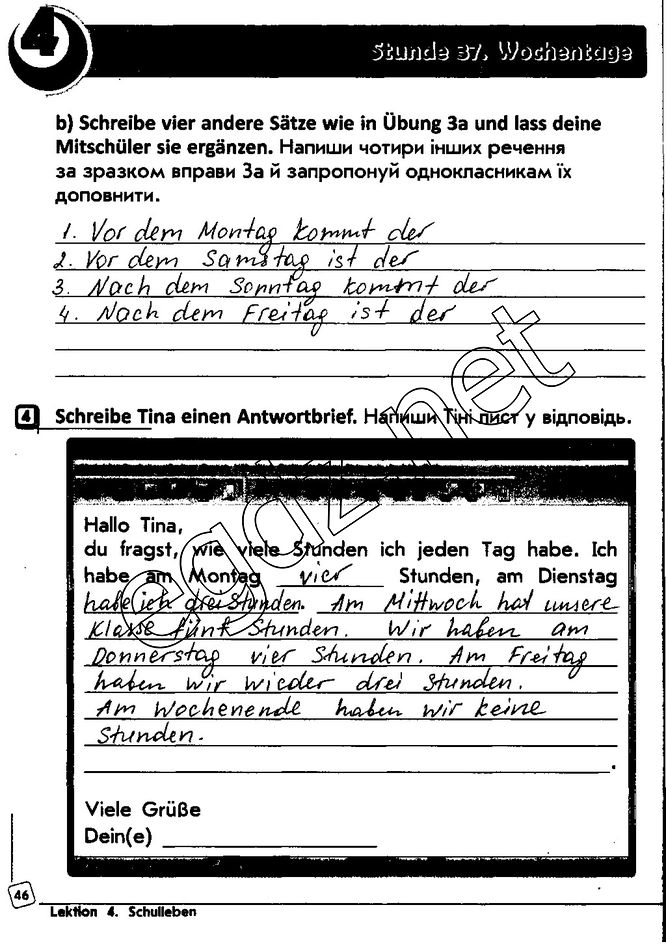 4
Stunde 37. Wochentage
b) Schreibe vier andere Sätze wie in Übung 3a und lass deine
Mitschüler sie ergänzen. Напиши чотири інших речення
за зразком вправи 3а й запропонуй однокласникам їх
доповнити.
1. Vor dem Montag kommt der
2. Vor dem Samstag ist der
3. Nach dem Sonntag kommt der
4. Nach dem Freitag ist der
4 Schreibe Tina einen Antwortbrief. Напиши Тіні лист у відповідь.
Hallo Tina,
du fragst, wie viele Stunden ich jeden Tag habe. Ich
habe am Montag vier Stunden, am Dienstag
habe ich drei Stunden. Am Mittwoch hat unsere
Klasse fünf Stunden. Wir haben am
Donnerstag vier Stunden. Am Freitag
haben wir wieder drei Stunden.
Am Wochenende haben wir keine
Stunden.
.
Viele Grüße
Dein(e)
46
Lektion 4. Schulleben
egdz.net